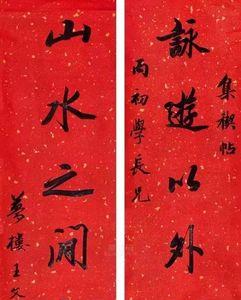 集楔帖
詠遊以外
雨初學長兄
山水之間
夢樓王文